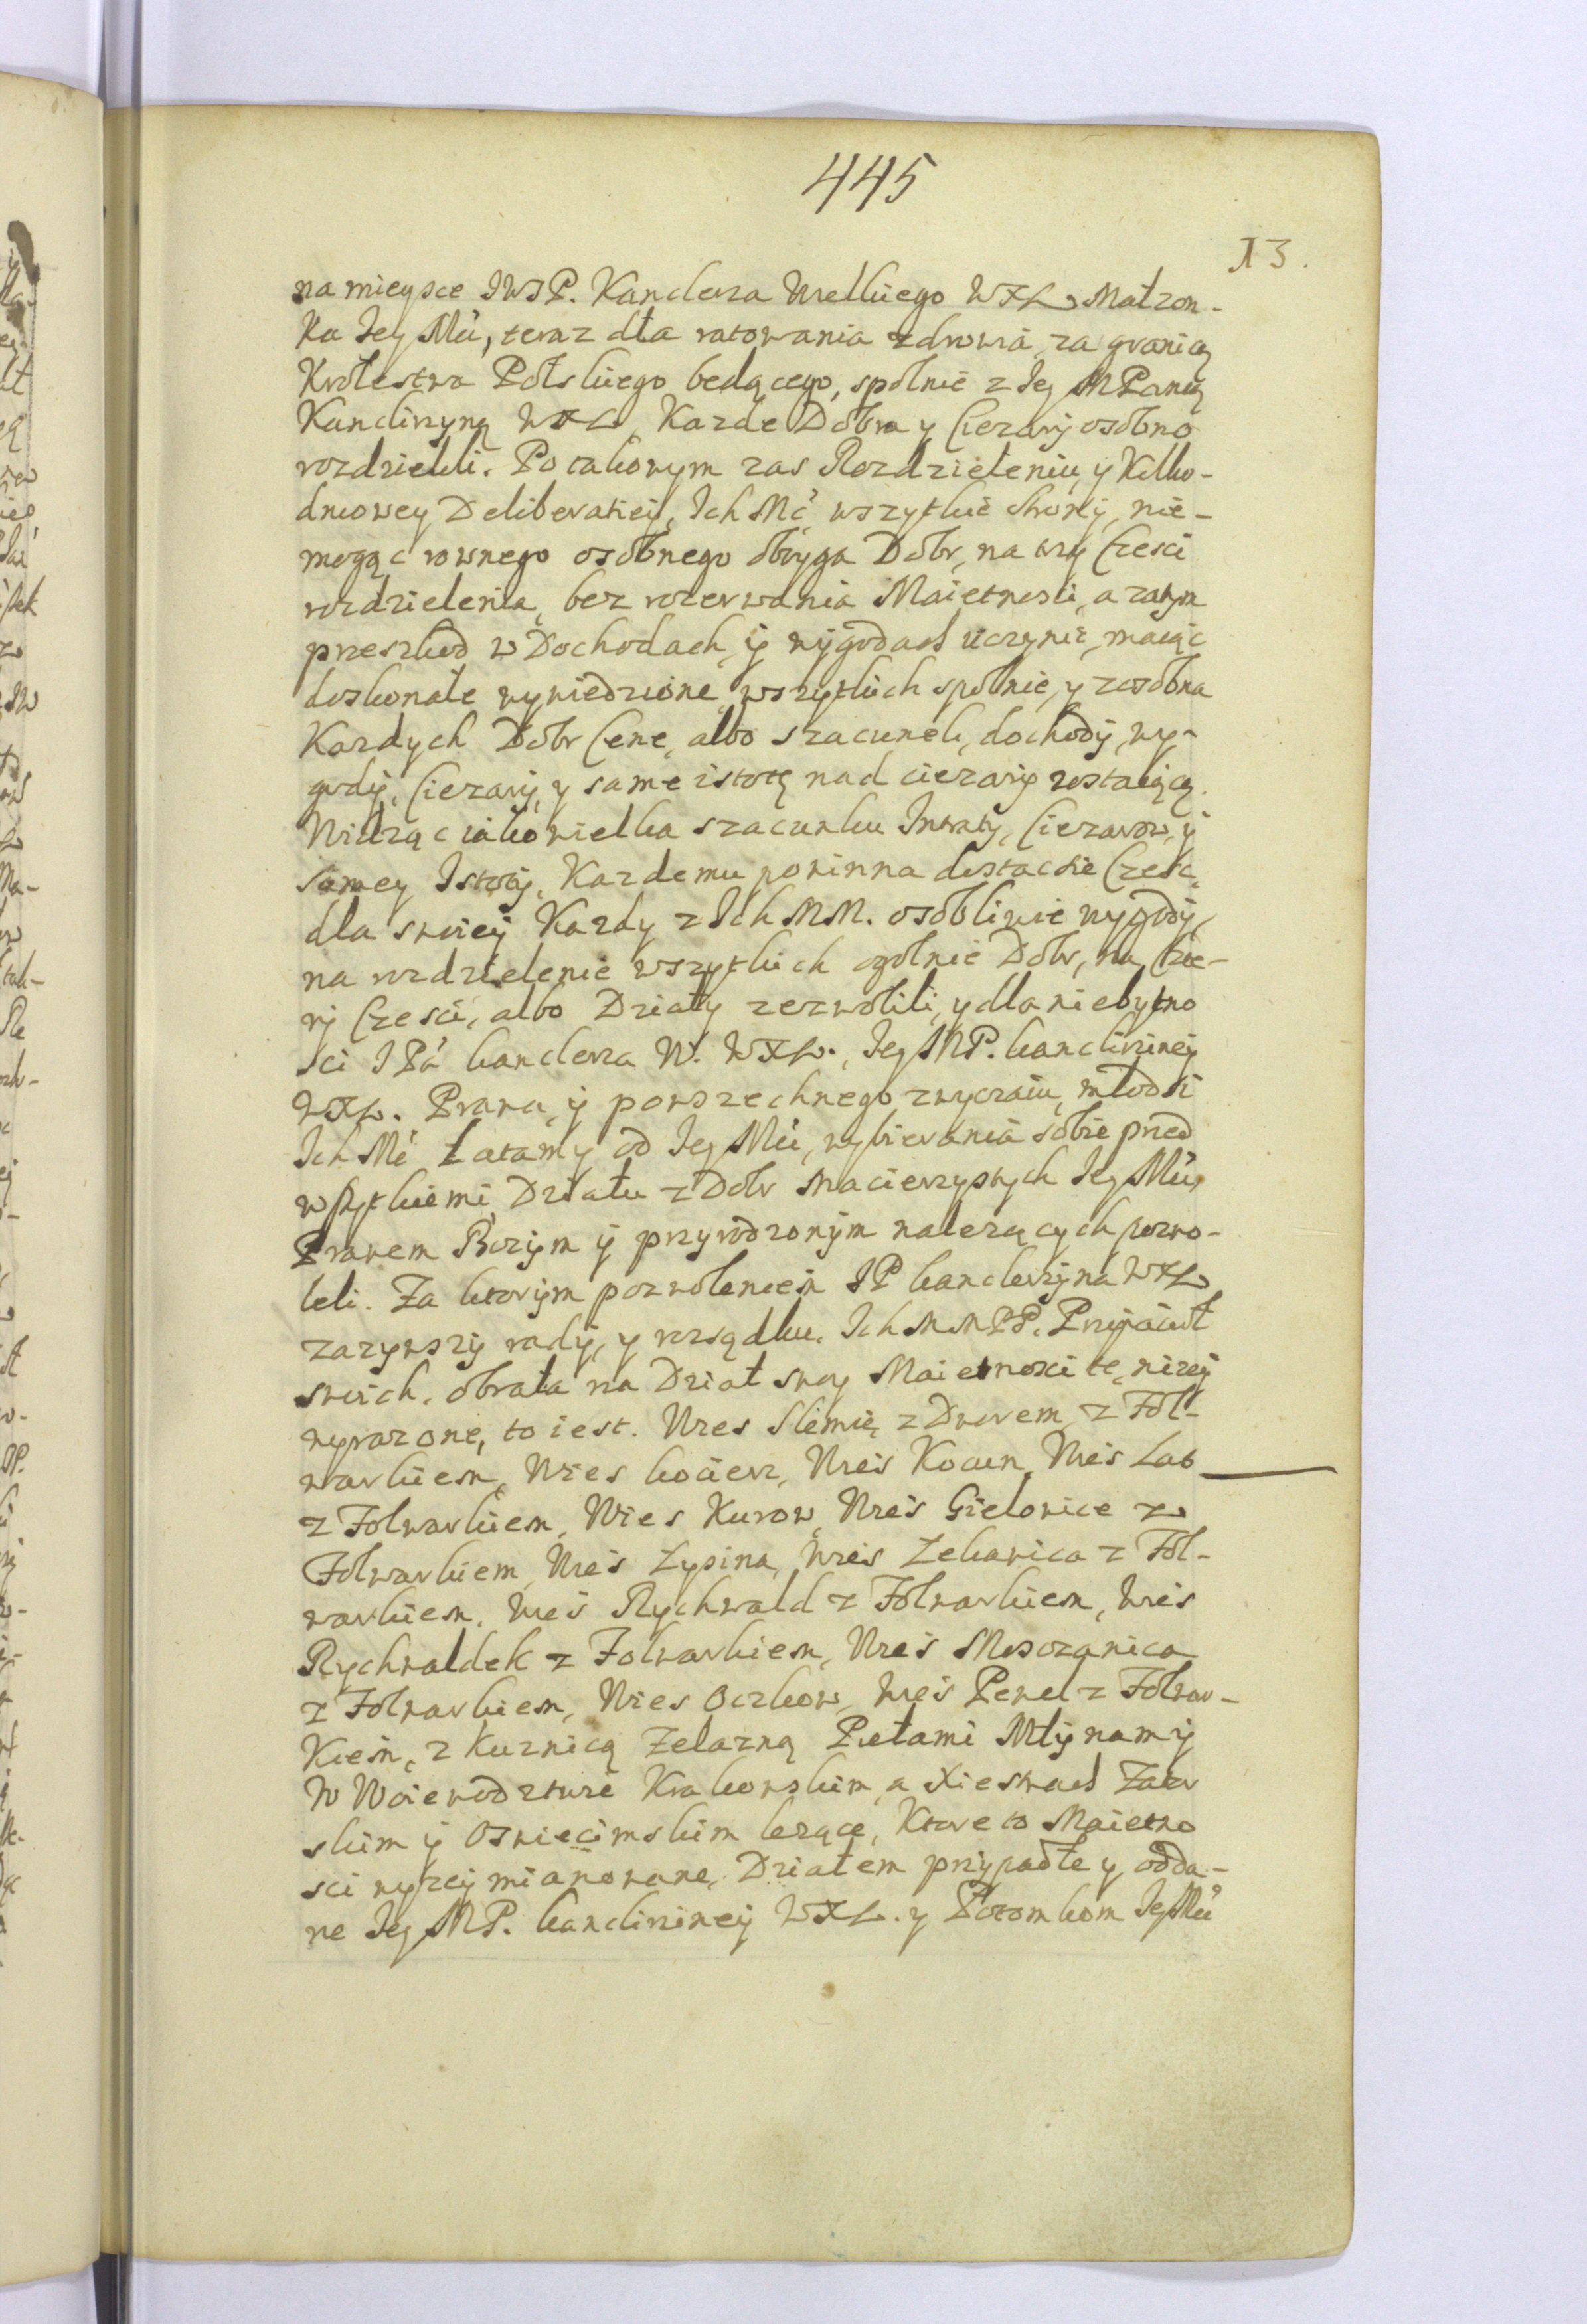 445
13.
na mieysce JWJP. Kanclerza Wielkiego WXL Małzon-
ka Jey Mći, teraz dla ratowania zdrowia za granicą
Krolestwa Polskiego będącego, spolnie z Jey MPanią
Kanclirzyną WXL, Kazde Dobra y Ciezary osobno
rozdzielili. Po takowym zas Rozdzieleniu, y Kilko-
dniowey Deliberatiey, Ich Mć wszytkie strony, nie-
mogąc rownego osobnego oboyga Dobr, na trzy Czesci
rozdzielenia, bez rozerwania Maietnosti, a zatym
przeszkod w Dochodach, y wygodach uczynic, maiąc
doskonale wywiedzione, wszytkich spolnie, y zosobna
Kozdych Dobr Cene, albo szacunek, dochody, wy-
gody, Ciezary, y same istotę nad ciezary zostaiącą.
Widząc iako wielka szacunku Intraty, Ciezarow, y
samey Istoty, Kazdemu powinna dostac sie Czesc,
dla swiey Kazdy z Ich MM. osobliwie wygody,
na rozdzielenie wszytkich ogolnie Dobr, na Czte-
ry Czesci, albo Działy zezwolili, y dla niebytno
sci JPa kanclerza W. WXL., Jey MP. kanclirziney
WXL. Prawa, y powszechnego zwyczaiu, młodsi
Ich Mć Latamy od Jey Mći, wybierania sobie przed
wszytkiemi, Działu z Dobr Macierzystych Jey Mći,
Prawem Bozym y przyrodzonym nalezących pozwo-
leli. Za ktorym pozwoleniem JP kanclerzyna WXL
zazywszy rady, y rozsądku, Ich MMPP. Przyiaciół
swoich, obrała na Dział swoy Maietnosci te, nizey
wyrazone, to iest. Wies Slemię, z Dworem, z Fol-
warkiem, Wies kocierz, Wies Kocun, Wies Las
z Folwarkiem, Wies Kurow, Wies Gielowice z
Folwarkiem, Wies Łysina, Wies Łekawica z Fol-
warkiem, Wies Rychwald z Folwarkiem, Wies
Rychwaldek z Folwarkiem, Wies Mosczanica
z Folwarkiem, Wies Oczkow, Wies Pewel z Folwar-
kiem, z Kuznicą Zelazną Piełami Młynamy
W Woiewodztwie Krakowskim, a Xiestwach Zator
skim y Oswiecimskim lezące, Ktore to Maietno
sci wyzey mianowane, Działem przypadłe y odda-
ne Jey MP. kanclirziney WXL. y Potomkom JeyMći